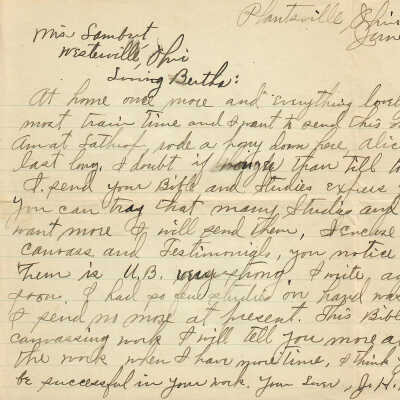 Plantsville, Ohio
June
Miss Lambert
Westerville, Ohio
Loving Bertha:
At home once more and "Everything lovely
most train time and I want to send this
am at rode a pony down here, Alice
last long. I doubt if longer than till
I send your Bible and Studies
you can that many Studies and
want more I will send them, I
canvass and Testimonials, you notice
them is U.B. very strong. I write
soon. I had so few studies on hand
I send no more at present. This Bible
canvassing work I will tell you more
the work when I have more time, I think
be successful in your work. Your Lover, J.H.